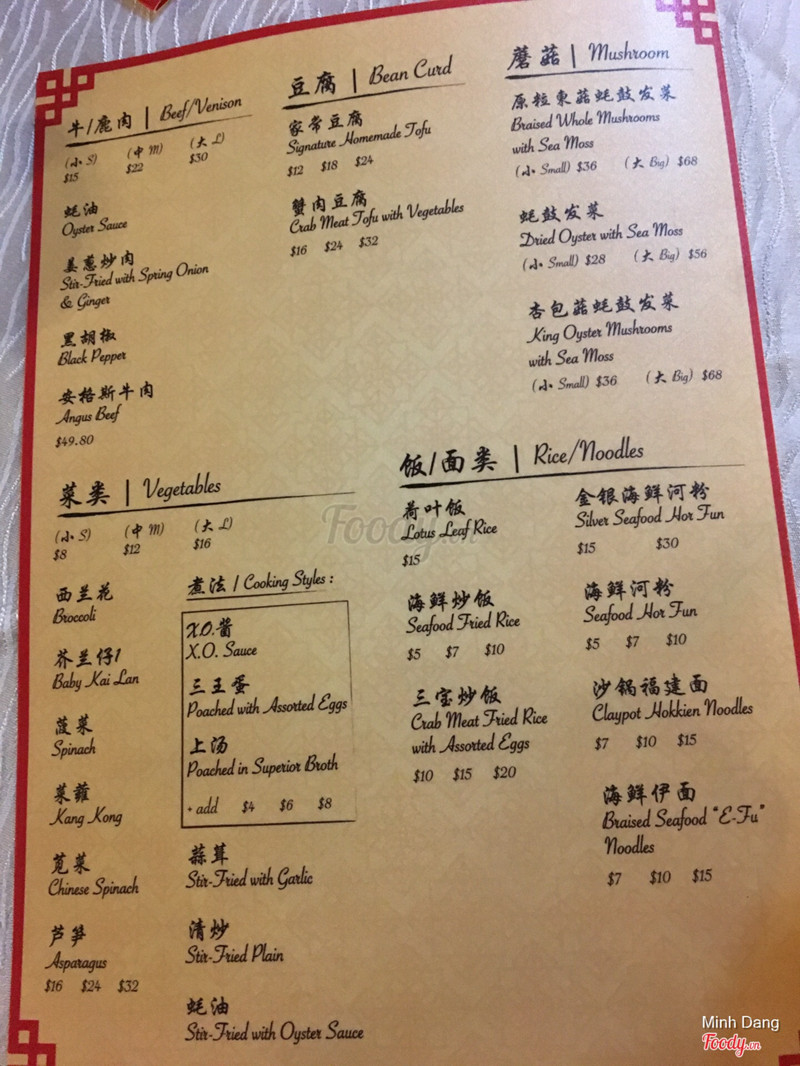 牛/鹿肉 | Beef/Venison
(小 S) (中 M) (大 L)
$15 $22 $30
蚝油
Oyster Sauce
姜葱炒肉
Stir-Fried with Spring Onion
& Ginger
黑胡椒
Black Pepper
安格斯牛肉
Angus Beef
$49.80
豆腐 | Bean Curd
家常豆腐
Signature Homemade Tofu
$12 $18 $24
蟹肉豆腐
Crab Meat Tofu with Vegetables
$16 $24 $32
蘑菇 | Mushroom
原粒東菇蚝鼓发菜
Braised Whole Mushrooms
with Sea Moss
(小 Small) $36 (大 Big) $68
蚝鼓发菜
Dried Oyster with Sea Moss
(小 Small) $28 (大 Big) $56
杏包菇蚝鼓发菜
King Oyster Mushrooms
with Sea Moss
(小 Small) $36 (大 Big) $68
菜类 | Vegetables
(小 S) (中 M) (大 L)
$8 $12 $16
西兰花
Broccoli
芥兰仔
Baby Kai Lan
菠菜
Spinach
Kang Kong
苋菜
Chinese Spinach
芦笋
Asparagus
$16 $24 $32
煮法 / Cooking Styles :
X.O.酱
X.O. Sauce
三王蛋
Poached with Assorted Eggs
上汤
Poached in Superior Broth
+ add $4 $6 $8
蒜茸
Stir-Fried with Garlic
清炒
Stir-Fried Plain
蚝油
Stir-Fried with Oyster Sauce
饭/面类 | Rice/Noodles
荷叶饭
Lotus Leaf Rice
$15
海鲜炒饭
Seafood Fried Rice
$5 $7 $10
三宝炒饭
Crab Meat Fried Rice
with Assorted Eggs
$10 $15 $20
金银海鲜河粉
Silver Seafood Hor Fun
$15 $30
海鲜河粉
Seafood Hor Fun
$5 $7 $10
沙锅福建面
Claypot Hokkien Noodles
$7 $10 $15
海鲜伊面
Braised Seafood "E-Fu"
Noodles
$7 $10 $15
Foody.vn
Minh Dang
Foody.vn